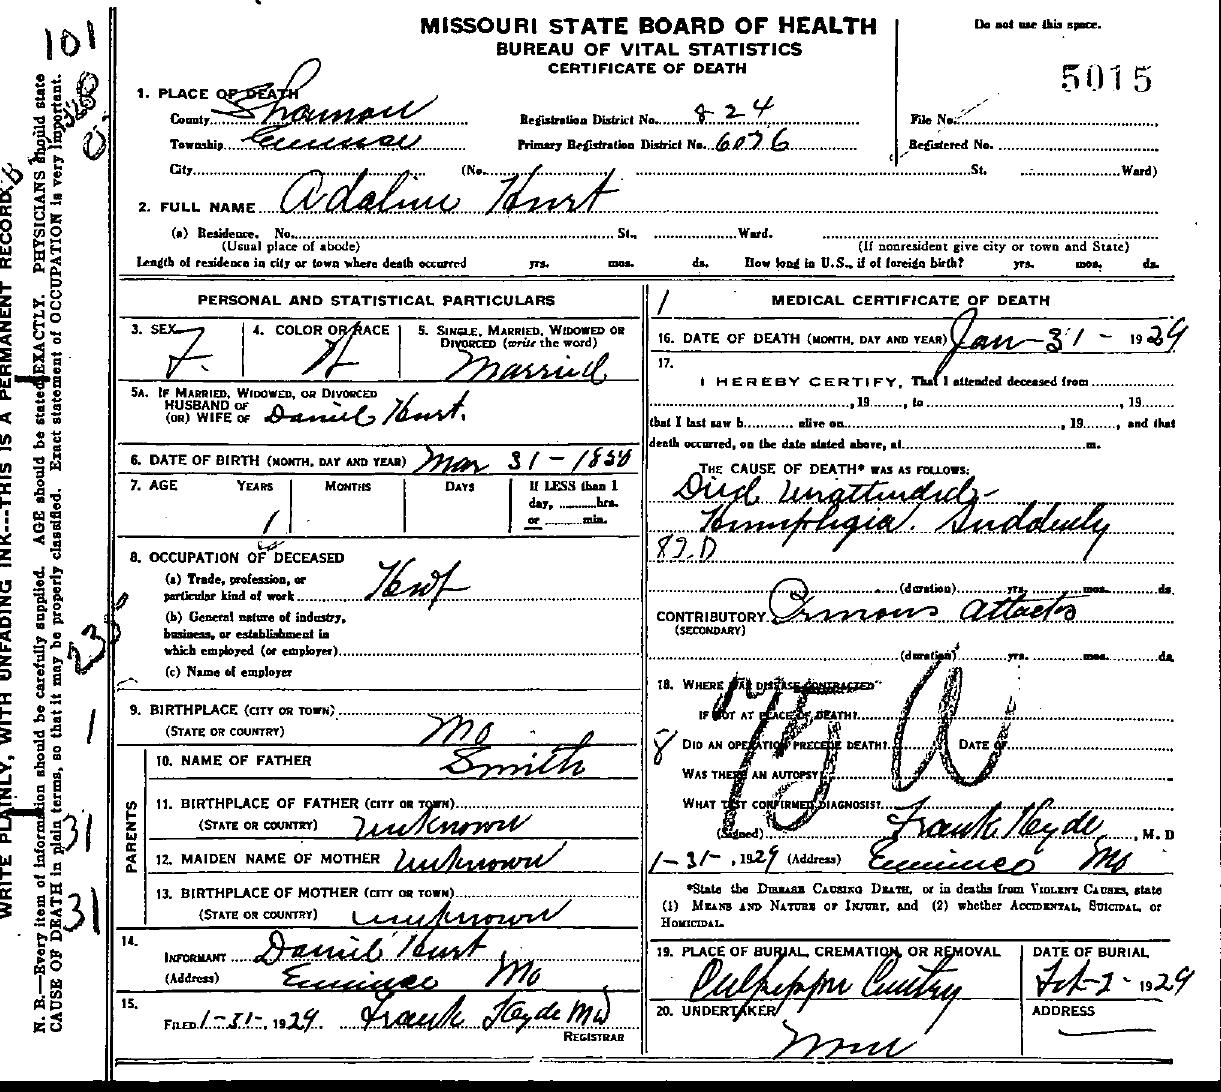 MISSOURI STATE BOARD OF HEALTH
BUREAU OF VITAL STATISTICS
CERTIFICATE OF DEATH
Do not use this space.
5015
1. PLACE OF DEATH
County Shannon Registration District No. 824 File No.
Township Eminence Primary Registration District No. 6076 Registered No.
City (No. St. Ward)
2. FULL NAME Adaline Hurt
(a) Residence. No. St., Ward.
(Usual place of abode) (If nonresident give city or town and State)
Length of residence in city or town where death occurred yrs. mos. ds. How long in U.S., if of foreign birth? yrs. mos. ds.
PERSONAL AND STATISTICAL PARTICULARS
3. SEX F. 4. COLOR OR RACE W 5. SINGLE, MARRIED, WIDOWED OR DIVORCED (write the word) Married
5A. IF MARRIED, WIDOWED, OR DIVORCED
HUSBAND OF
(OR) WIFE OF Daniel Hurt.
6. DATE OF BIRTH (MONTH, DAY AND YEAR) Mar 31-
7. AGE YEARS MONTHS DAYS If LESS than 1
day, hrs.
or min.
8. OCCUPATION OF DECEASED
(a) Trade, profession, or
particular kind of work Hswf
(b) General nature of industry,
business, or establishment in
which employed (or employer)
(c) Name of employer
9. BIRTHPLACE (CITY OR TOWN)
(STATE OR COUNTRY) Mo
PARENTS
10. NAME OF FATHER Smith
11. BIRTHPLACE OF FATHER (CITY OR TOWN)
(STATE OR COUNTRY) unknown
12. MAIDEN NAME OF MOTHER unknown
13. BIRTHPLACE OF MOTHER (CITY OR TOWN)
(STATE OR COUNTRY) unknown
14.
INFORMANT Daniel Hurt
(Address) Eminence Mo
15.
FILED 1-31-, 1929 Frank Hyde MD
REGISTRAR
MEDICAL CERTIFICATE OF DEATH
16. DATE OF DEATH (MONTH, DAY AND YEAR) Jan-31- 1929
17.
I HEREBY CERTIFY, That I attended deceased from
, 19 , to , 19
that I last saw h alive on , 19 , and that
death occurred, on the date stated above, at m.
THE CAUSE OF DEATH* WAS AS FOLLOWS:
Died unattended-
Hemiplegia. Suddenly
82D
(duration) yrs. mos. ds.
CONTRIBUTORY attacks
(SECONDARY)
(duration) yrs. mos. ds.
18. WHERE WAS DISEASE CONTRACTED
IF NOT AT PLACE OF DEATH?
DID AN OPERATION PRECEDE DEATH? DATE OF
WAS THERE AN AUTOPSY?
WHAT TEST CONFIRMED DIAGNOSIS?
(Signed) Frank Hyde, M. D
1-31-, 1929 (Address) Eminence Mo
*State the DISEASE CAUSING DEATH, or in deaths from VIOLENT CAUSES, state
(1) MEANS AND NATURE OF INJURY, and (2) whether ACCIDENTAL, SUICIDAL, or
HOMICIDAL.
19. PLACE OF BURIAL, CREMATION, OR REMOVAL DATE OF BURIAL
Culpepper Cemetry Feb-2- 1929
20. UNDERTAKER ADDRESS
None
WRITE PLAINLY, WITH UNFADING INK---THIS IS A PERMANENT RECORD
N. B.—Every item of information should be carefully supplied. AGE should be stated EXACTLY. PHYSICIANS should state
CAUSE OF DEATH in plain terms, so that it may be properly classified. Exact statement of OCCUPATION is very important.
101
1
31
31